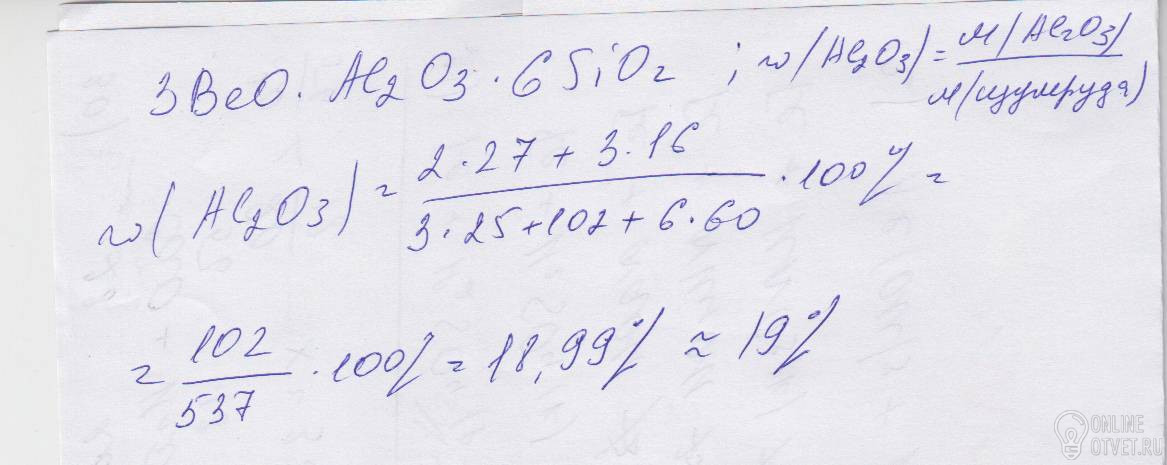 3BeO · Al2O3 · 6SiO2 ; w(Al2O3) = M(Al2O3) / M(изумруда)
w(Al2O3) = 2·27 + 3·16 / 3·25 + 102 + 6·60 · 100% =
= 102 / 537 · 100% = 18,99% ≈ 19%
ONLINE
OTVET.RU